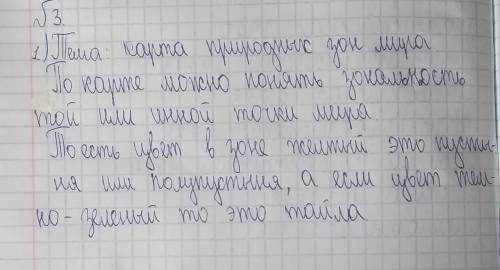 √3.
1) Тема: карта природных зон мира
По карте можно понять зональность
той или инной точки мира
Тоесть цвет в зоне желтый это пусты-
ня или полупустыня, а если цвет тём-
но-зеленый то это тайга